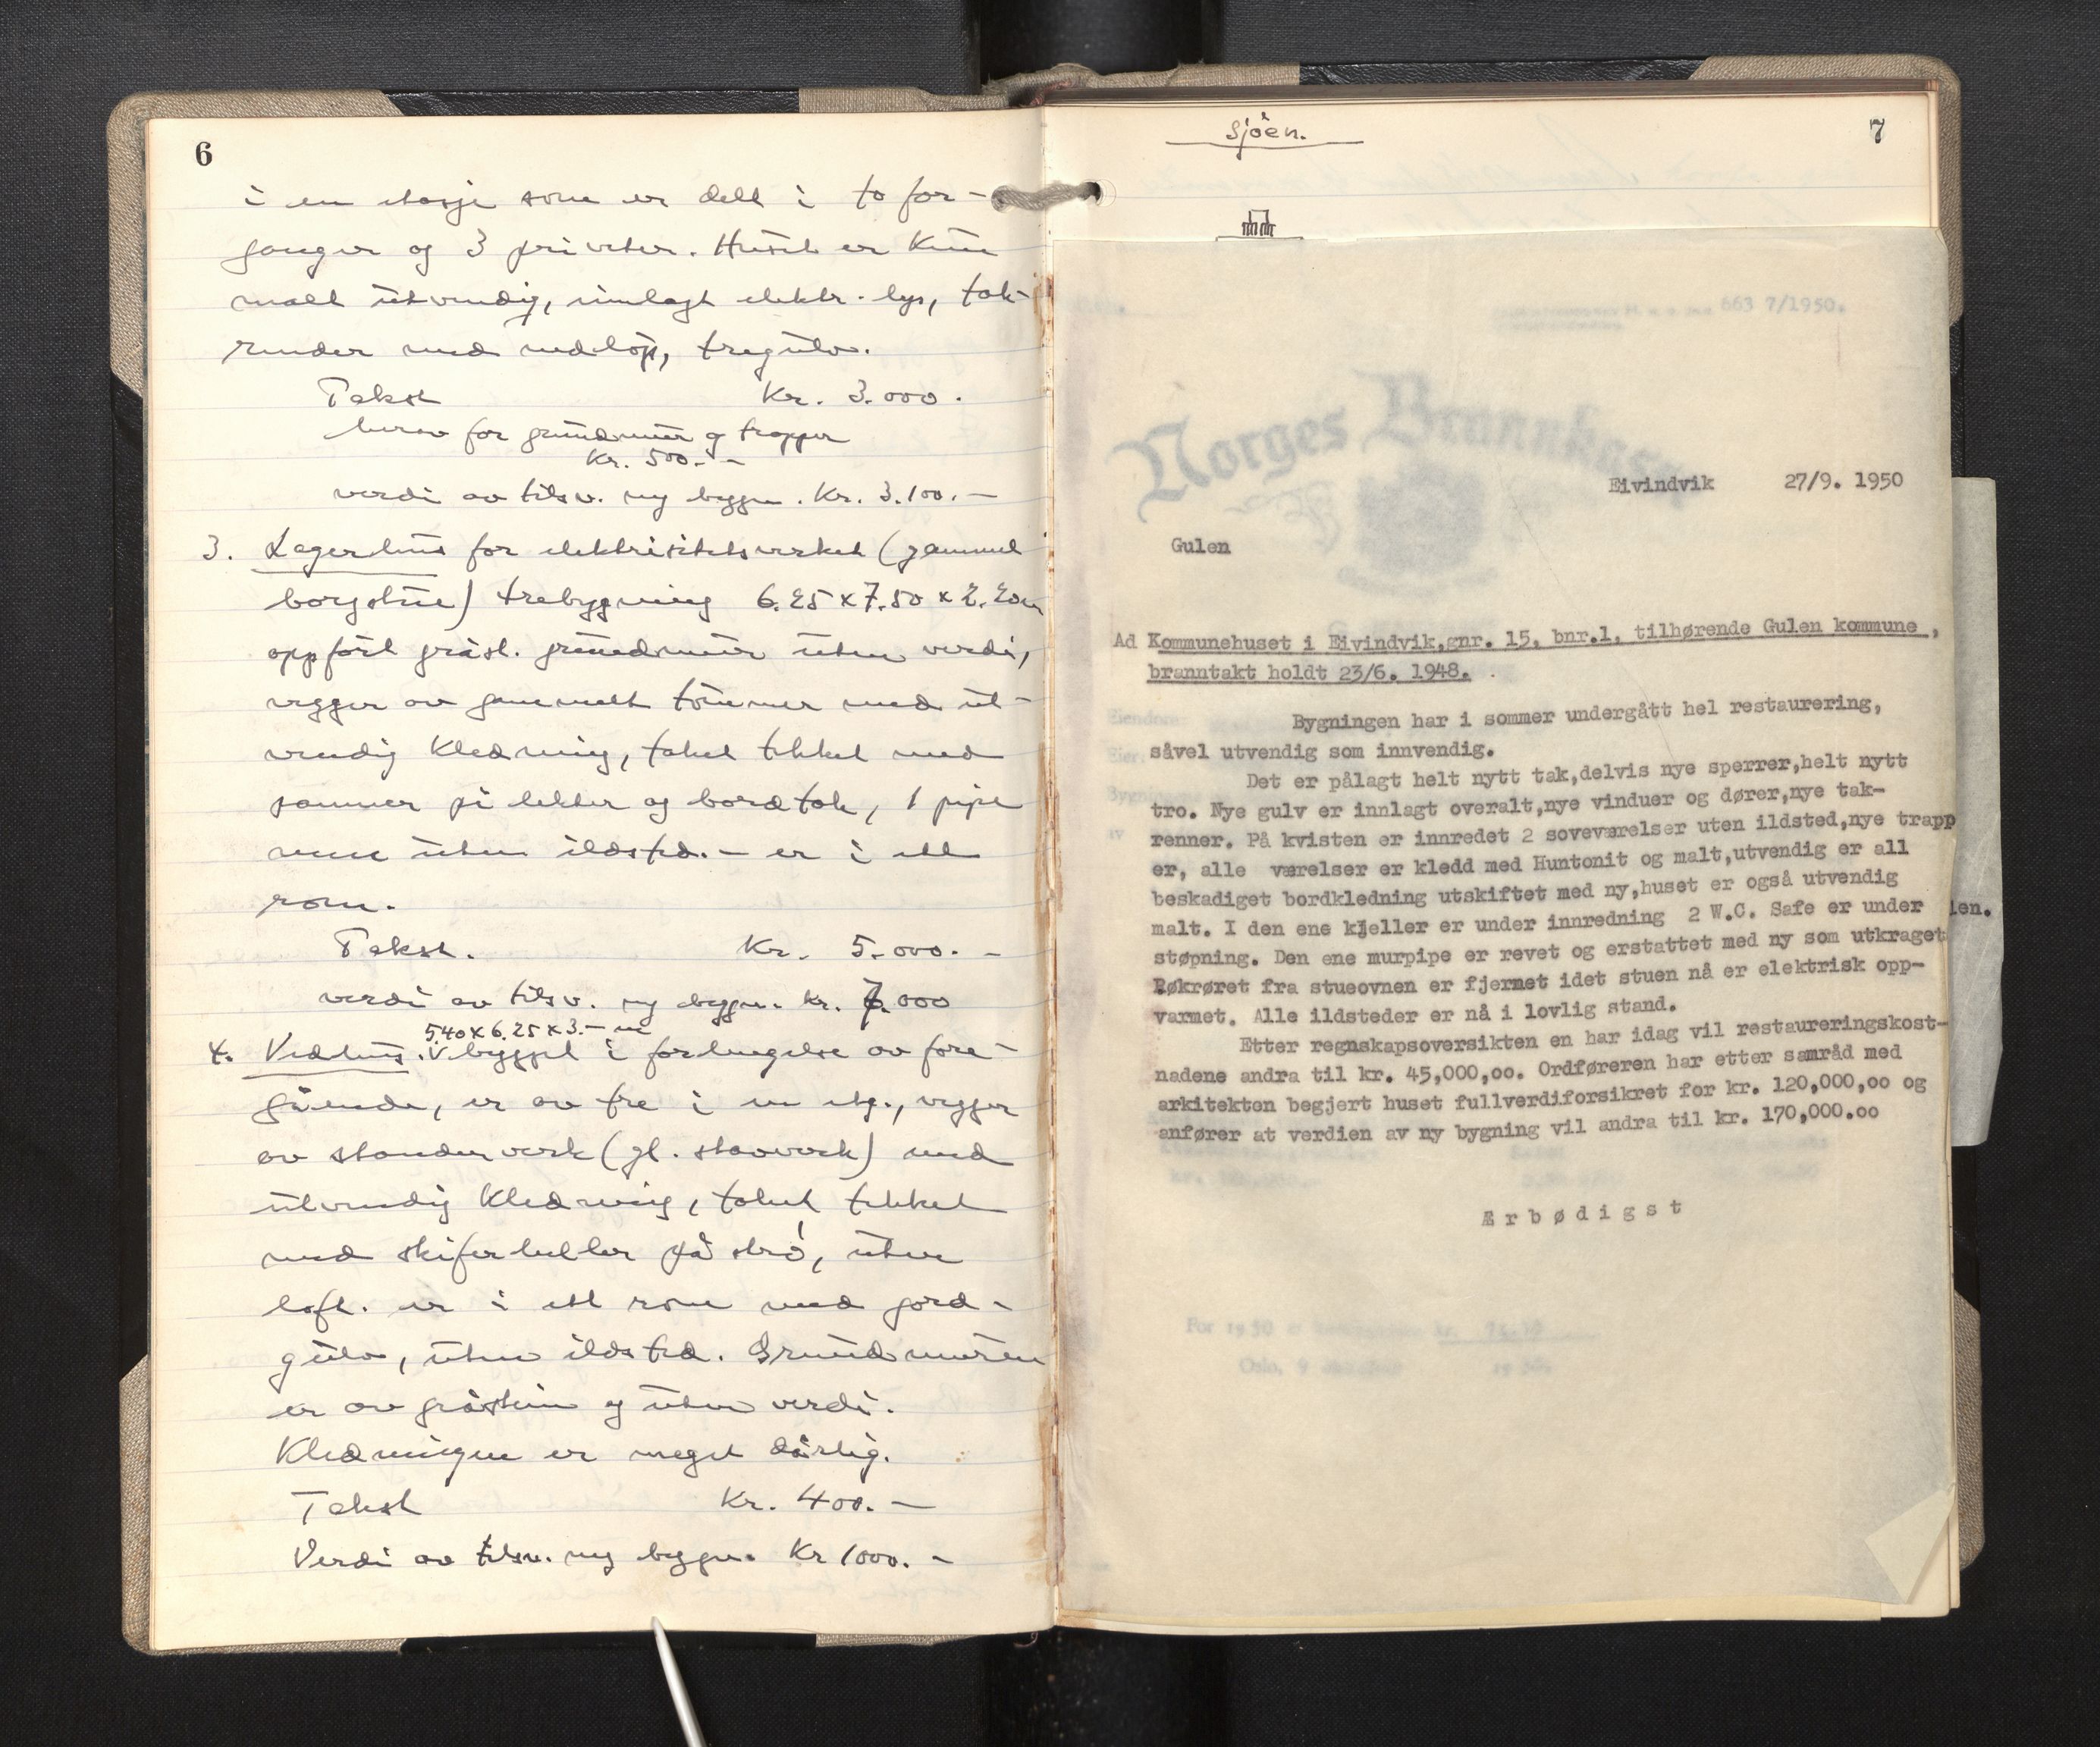 6
i en etasje som er delt i to for-
ganger og 3 priveter. Huset er kun
malt utvendig, innlagt elektr. lys, tak-
render med nedløp, tregulv.
Takst Kr. 3.000.
herav for grundmur og trapper
Kr. 500.- -
verdi av tilsv. ny bygn. Kr. 3.100. -
3. Lagerhus for elektrisitetsverket (gammel
borgstue) trebygning 6.25 x 7.50 x 2.20m
oppført gråst. grundmur uten verdi,
vegger av gammelt tømmer med ut-
vendig kledning, taket tekket med
panner på lekter og bordtak, 1 pipe
men uten ildsted. - er i ett
rom.
Takst. Kr. 5.000. -
verdi av tilsv. ny bygn. Kr. 7.000
5.40 x 6.25 x 3.- m
4. Vedhus. V bygget i forlengelse av fore-
gående, er av tre i en etg., vegger
av standerverk (gl. stavverk) med
utvendig kledning, taket tekket
med skiferheller på stro, uten
loft. er i ett rom med jord-
gulv, uten ildsted. Grundmuren
er av gråstein og uten verdi.
Kledningen er meget dårlig.
Takst Kr. 400. -
Verdi av tilsv. ny bygn. Kr 1000. -
sjøen.
7
663 7/1950.
Norges Brannkasse
Eivindvik 27/9. 1950
Gulen
Ad Kommunehuset i Eivindvik,gnr. 15, bnr.1, tilhørende Gulen kommune ,
branntakt holdt 23/6. 1948.
Bygningen har i sommer undergått hel restaurering,
såvel utvendig som innvendig.
Det er pålagt helt nytt tak,delvis nye sperrer,helt nytt
tro. Nye gulv er innlagt overalt,nye vinduer og dører,nye tak-
renner. På kvisten er innredet 2 soveværelser uten ildsted,nye trapp
er, alle værelser er kledd med Huntonit og malt,utvendig er all
beskadiget bordkledning utskiftet med ny,huset er også utvendig
malt. I den ene kjeller er under innredning 2 W.C. Safe er under
støpning. Den ene murpipe er revet og erstattet med ny som utkraget
Røkrøret fra stueovnen er fjernet idet stuen nå er elektrisk opp-
varmet. Alle ildsteder er nå i lovlig stand.
Etter regnskapsoversikten en har idag vil restaureringskost-
nadene andra til kr. 45,000,oo. Ordføreren har etter samråd med
arkitekten begjert huset fullverdiforsikret for kr. 120,000,oo og
anfører at verdien av ny bygning vil andra til kr. 170,000.oo
Ærbødigst
ien.
For 1950
Oslo, 9